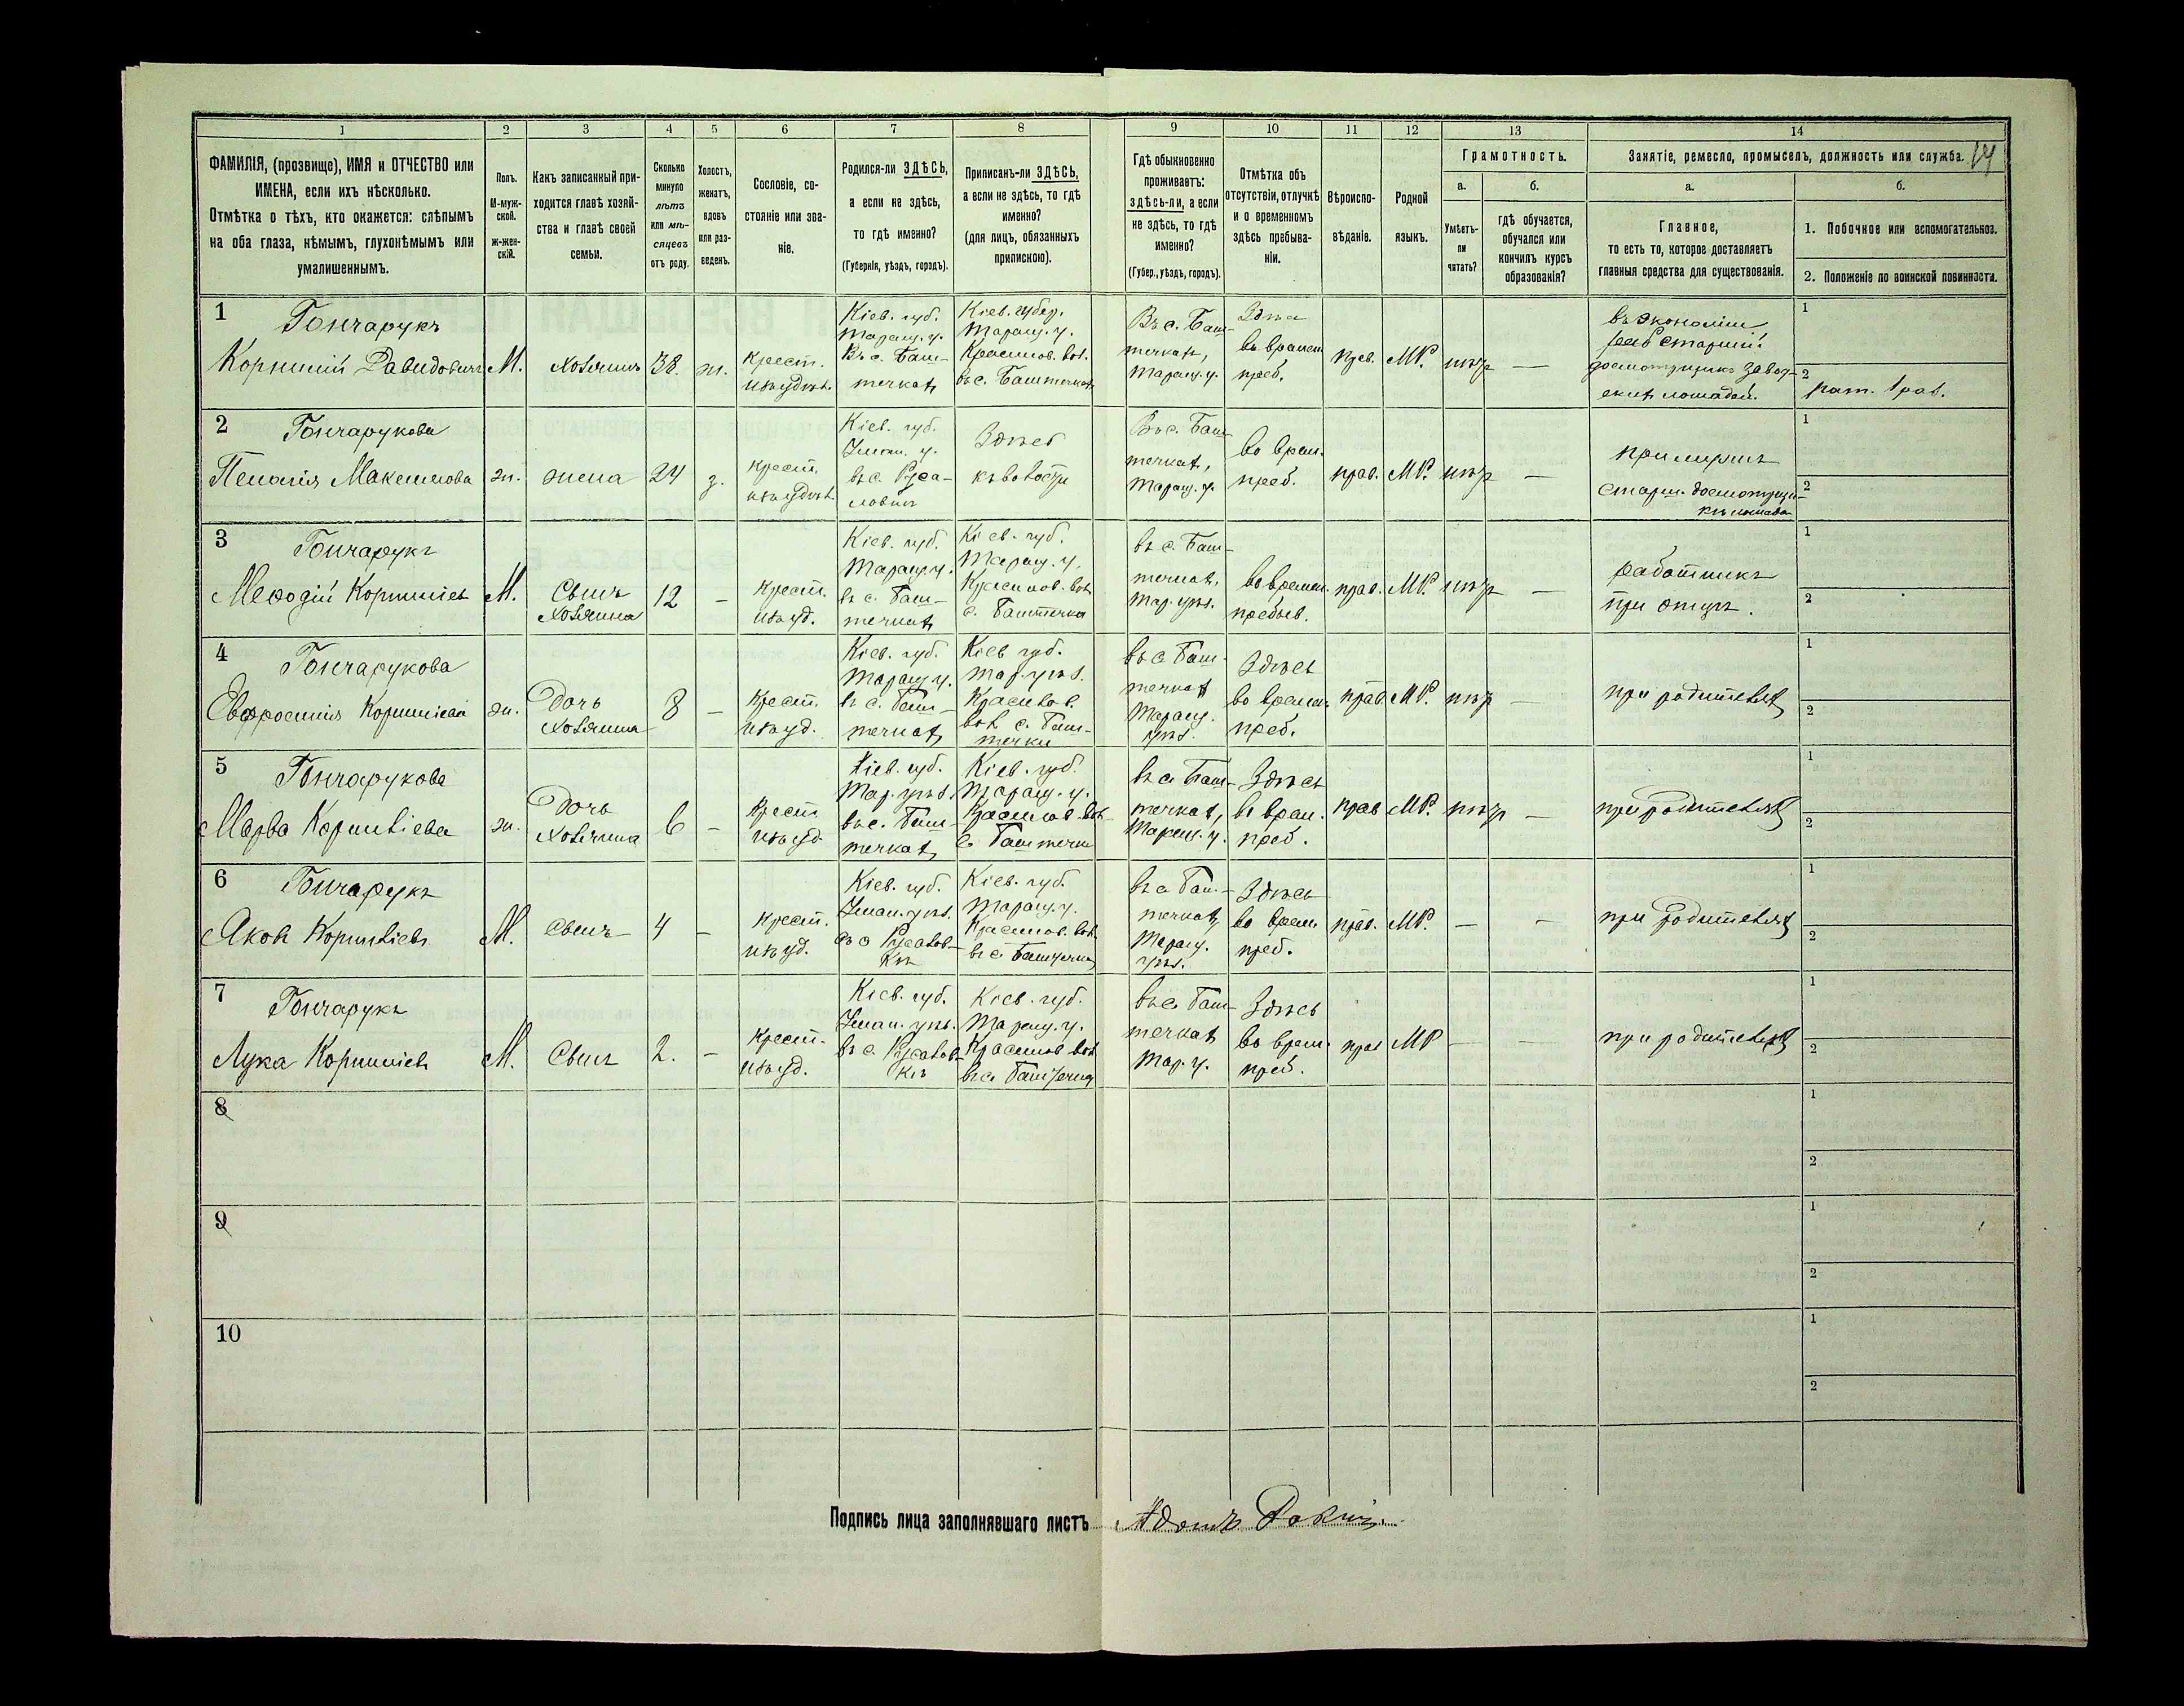 1
2
3
4
5
6
7
8
9
10
11
12
13
14
14
ФАМИЛІЯ, (прозвище), ИМЯ и ОТЧЕСТВО или
ИМЕНА, если ихъ нѣсколько.
Отмѣтка о тѣхъ, кто окажется: слѣпымъ
на оба глаза, нѣмымъ, глухонѣмымъ или
умалишеннымъ.
Полъ.
М-муж-
ской.
ж-жен-
скій.
Какъ записанный при-
ходится главѣ хозяй-
ства и главѣ своей
семьи.
Сколько
минуло
лѣтъ
или мѣ-
сяцевъ
отъ роду.
Холостъ,
женатъ,
вдовъ
или раз-
веденъ.
Сословіе, со-
стояніе или зва-
ніе.
Родился-ли ЗДѢСЬ,
а если не здѣсь,
то гдѣ именно?
(Губернія, уѣздъ, городъ).
Приписанъ-ли ЗДѢСЬ,
а если не здѣсь, то гдѣ
именно?
(для лицъ, обязанныхъ
припискою).
Гдѣ обыкновенно
проживаетъ:
здѣсь-ли, а если
не здѣсь, то гдѣ
именно?
(Губер., уѣздъ, городъ).
Отмѣтка объ
отсутствіи, отлучкѣ
и о временномъ
здѣсь пребыва-
ніи.
Вѣроиспо-
вѣданіе.
Родной
языкъ.
Грамотность.
а.
б.
Умѣетъ-
ли
читать?
гдѣ обучается,
обучался или
кончилъ курсъ
образованія?
Занятіе, ремесло, промыселъ, должность или служба.
а.
б.
Главное,
то есть то, которое доставляетъ
главныя средства для существованія.
1. Побочное или вспомогательное.
2. Положеніе по воинской повинности.
1
Гончарукъ
Корнилій Давидовичъ
М.
хозяинъ
38.
ж.
Крест.
Кіев. губ.
Таращ. у.
Въ с. Баш-
течкахъ
Кіев. губер.
Таращ. у.
въ с. Баштечкахъ
Въ с. Баш-
течкахъ,
Таращ. у.
преб.
прав.
МР.
нѣтъ
—
въ экономіи
скихъ лошадей.
1
2
рат. 1 раз.
2
Гончарукова
Максимова
ж.
жена
24
з.
крест.
Кіев. губ.
Уман. у.
въ с. Руса-
ловкѣ
Въ с. Баш-
течкахъ,
Таращ. у.
во врем.
преб.
прав.
МР.
нѣтъ
—
при мужѣ
1
2
3
Гончарукъ
Меѳодій Корниліев
М.
Сынъ
хозяина
12
—
Крест.
Кіев. губ.
Таращ. у.
въ с. Баш-
течкахъ
Кіев. губ.
Таращ. у.
с. Баштечки
въ с. Баш-
течкахъ,
Тар. уѣз.
во времен.
пребыв.
прав.
МР.
нѣтъ
—
работникъ
при отцѣ.
1
2
4
Гончарукова
Евфросинія Корниліева
ж.
Дочь
хозяина
8
—
Крест.
Кіев. губ.
Таращ. у.
въ с. Баш-
течкахъ
Кіев губ.
Тар. уѣз.
вол. с. Баш-
течки
въ с. Баш-
течкахъ
Таращ.
уѣз.
Здѣсь
во времен.
преб.
прав.
МР.
нѣтъ
—
при родителяхъ
1
2
5
Гончарукова
Марѳа Корниліева
ж.
Дочь
хозяина
6
—
Крест
Кіев. губ.
Тар. уѣз.
въ с. Баш-
течкахъ
Кіев. губ.
Таращ. у.
с. Баштечки
въ с. Баш-
течкахъ,
Таращ. у.
Здѣсь
во врем.
преб.
прав
МР.
нѣтъ
—
при родителяхъ
1
2
6
Гончарукъ
Яковъ Корниліевъ
М.
Сынъ
4
—
Крест.
Кіев. губ.
Уман. уѣз.
въ с Русалов-
кѣ
Кіев. губ.
Таращ. у.
въ с. Баштечки
въ с Баш-
течкахъ
Таращ.
уѣз.
Здѣсь
во врем
преб.
прав.
МР.
—
—
при родителяхъ
1
2
7
Гончарукъ
Лука Корниліевъ
М.
Сынъ
2.
—
Крест.
Кіев. губ.
Уман. уѣз.
въ с. Русалов-
кѣ
Кіев. губ.
Таращ. у.
въ с. Баштечкахъ
въ с. Баш-
течкахъ
Тар. у.
Здѣсь
во врем.
преб.
прав
МР
—
—
при родителяхъ
1
2
8
1
2
9
1
2
10
1
2
Подпись лица заполнявшаго листъ